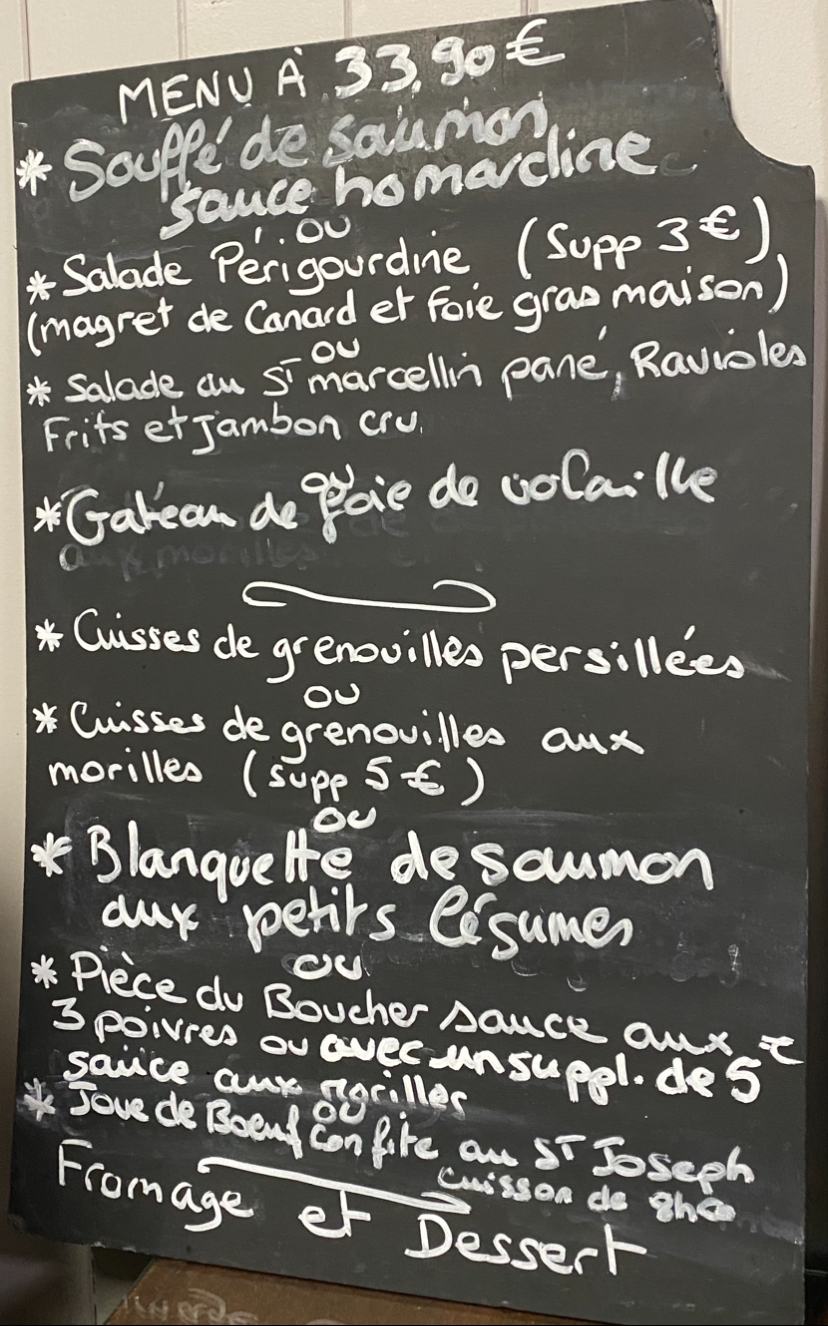 MENU À 33,90€
* Soufflé de saumon
sauce homardine
ou
* Salade Périgourdine (Supp 3€)
(magret de Canard et Foie gras maison)
ou
* Salade au ST marcellin pané, Ravioles
Frits et Jambon cru.
ou
* Gatéau de foie de volaille
aux morilles
* Cuisses de grenouilles persillées
ou
* Cuisses de grenouilles aux
morilles (supp 5€)
ou
* Blanquette de saumon
aux petits légumes
ou
* Pièce du Boucher sauce aux
3 poivres ou avec un suppl. de 5€
sauce aux morilles
ou
* Joue de Boeuf Confite au ST Joseph
cuisson de 8h
Fromage et Dessert